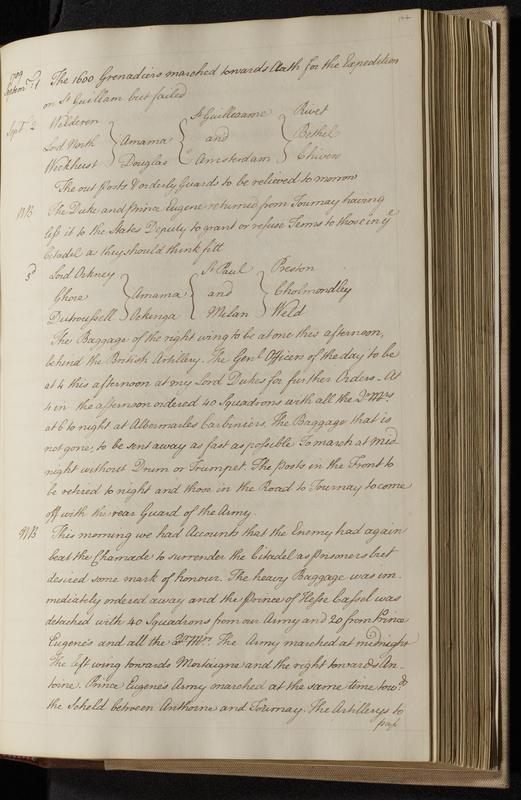 1709
Septemr. 1 The 1600 Grenadiers marched towards Aath for the Expedition
on St Guillam but failed
Sept. 2 Welderen St Guilleaume Rivet
Lord North Amama and Bethel
Weckhust Douglas Amsterdam Chiven
The out posts & orderly Guards to be relieved to morrow
NB The Duke and Prince Eugene returned from Tournay having
left it to the States Deputy to grant or refuse Terms to those in ye
Citadel as they should think fitt
3d Lord Orkney St Paul Preston
Ghore Amama and Cholmondley
Dutroussell Ockenga Milan Weld
The Baggage of the right wing to be at one this afternoon,
behind the British Artillery. The Genl. Officers of the day to be
at 4 this afternoon at my Lord Dukes for further Orders. At
4 in the afternoon ordered 40 Squadrons with all the Qr. Mrs.
at 6 to night at Albemarles Carbiniers. The Baggage that is
not gone, to be sent away as fast as possible To march at mid
night without Drum or Trumpet. The posts in the Front to
be retired to night and those in the Road to Tournay to come
off with the rear Guard of the Army.
NB This morning we had Accounts that the Enemy had again
beat the Chamade to surrender the Citadel as prisoners but
desired some mark of honour. The heavy Baggage was im-
mediately ordered away and the Prince of Hesse Cassel was
detached with 40 Squadrons from our Army and 20 from Prince
Eugene's and all the Qr. Mrs. The Army marched at midnight
The left wing towards Mortaigne and the right towards An-
toine. Prince Eugene's Army marched at the same time towds
the Scheld between Anthoine and Tournay. The Artillerys to
pass